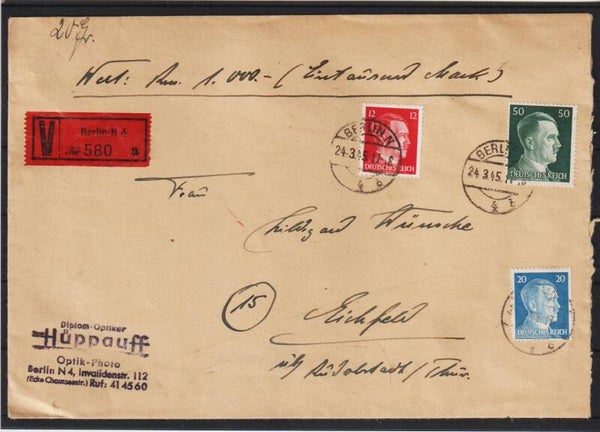 20 gr.
Wert: Rm. 1.000.- (Eintausend Mark)
V
Berlin N 4
№ 580 a
12 12
DEUTSCHES REICH
BERLIN N
24.3.45.17-
4 b
50 50
DEUTSCHES REICH
BERLIN
24.3.45.17
4 b
Frau
Hildegard Wünsche
20 20
DEUTSCHES REICH
15
Eichfeld
üb/ Rudolstadt/Thür.
Diplom-Optiker
Hüppauff
Optik-Photo
Berlin N 4, Invalidenstr. 112
(Ecke Chausseestr.) Ruf: 41 45 60